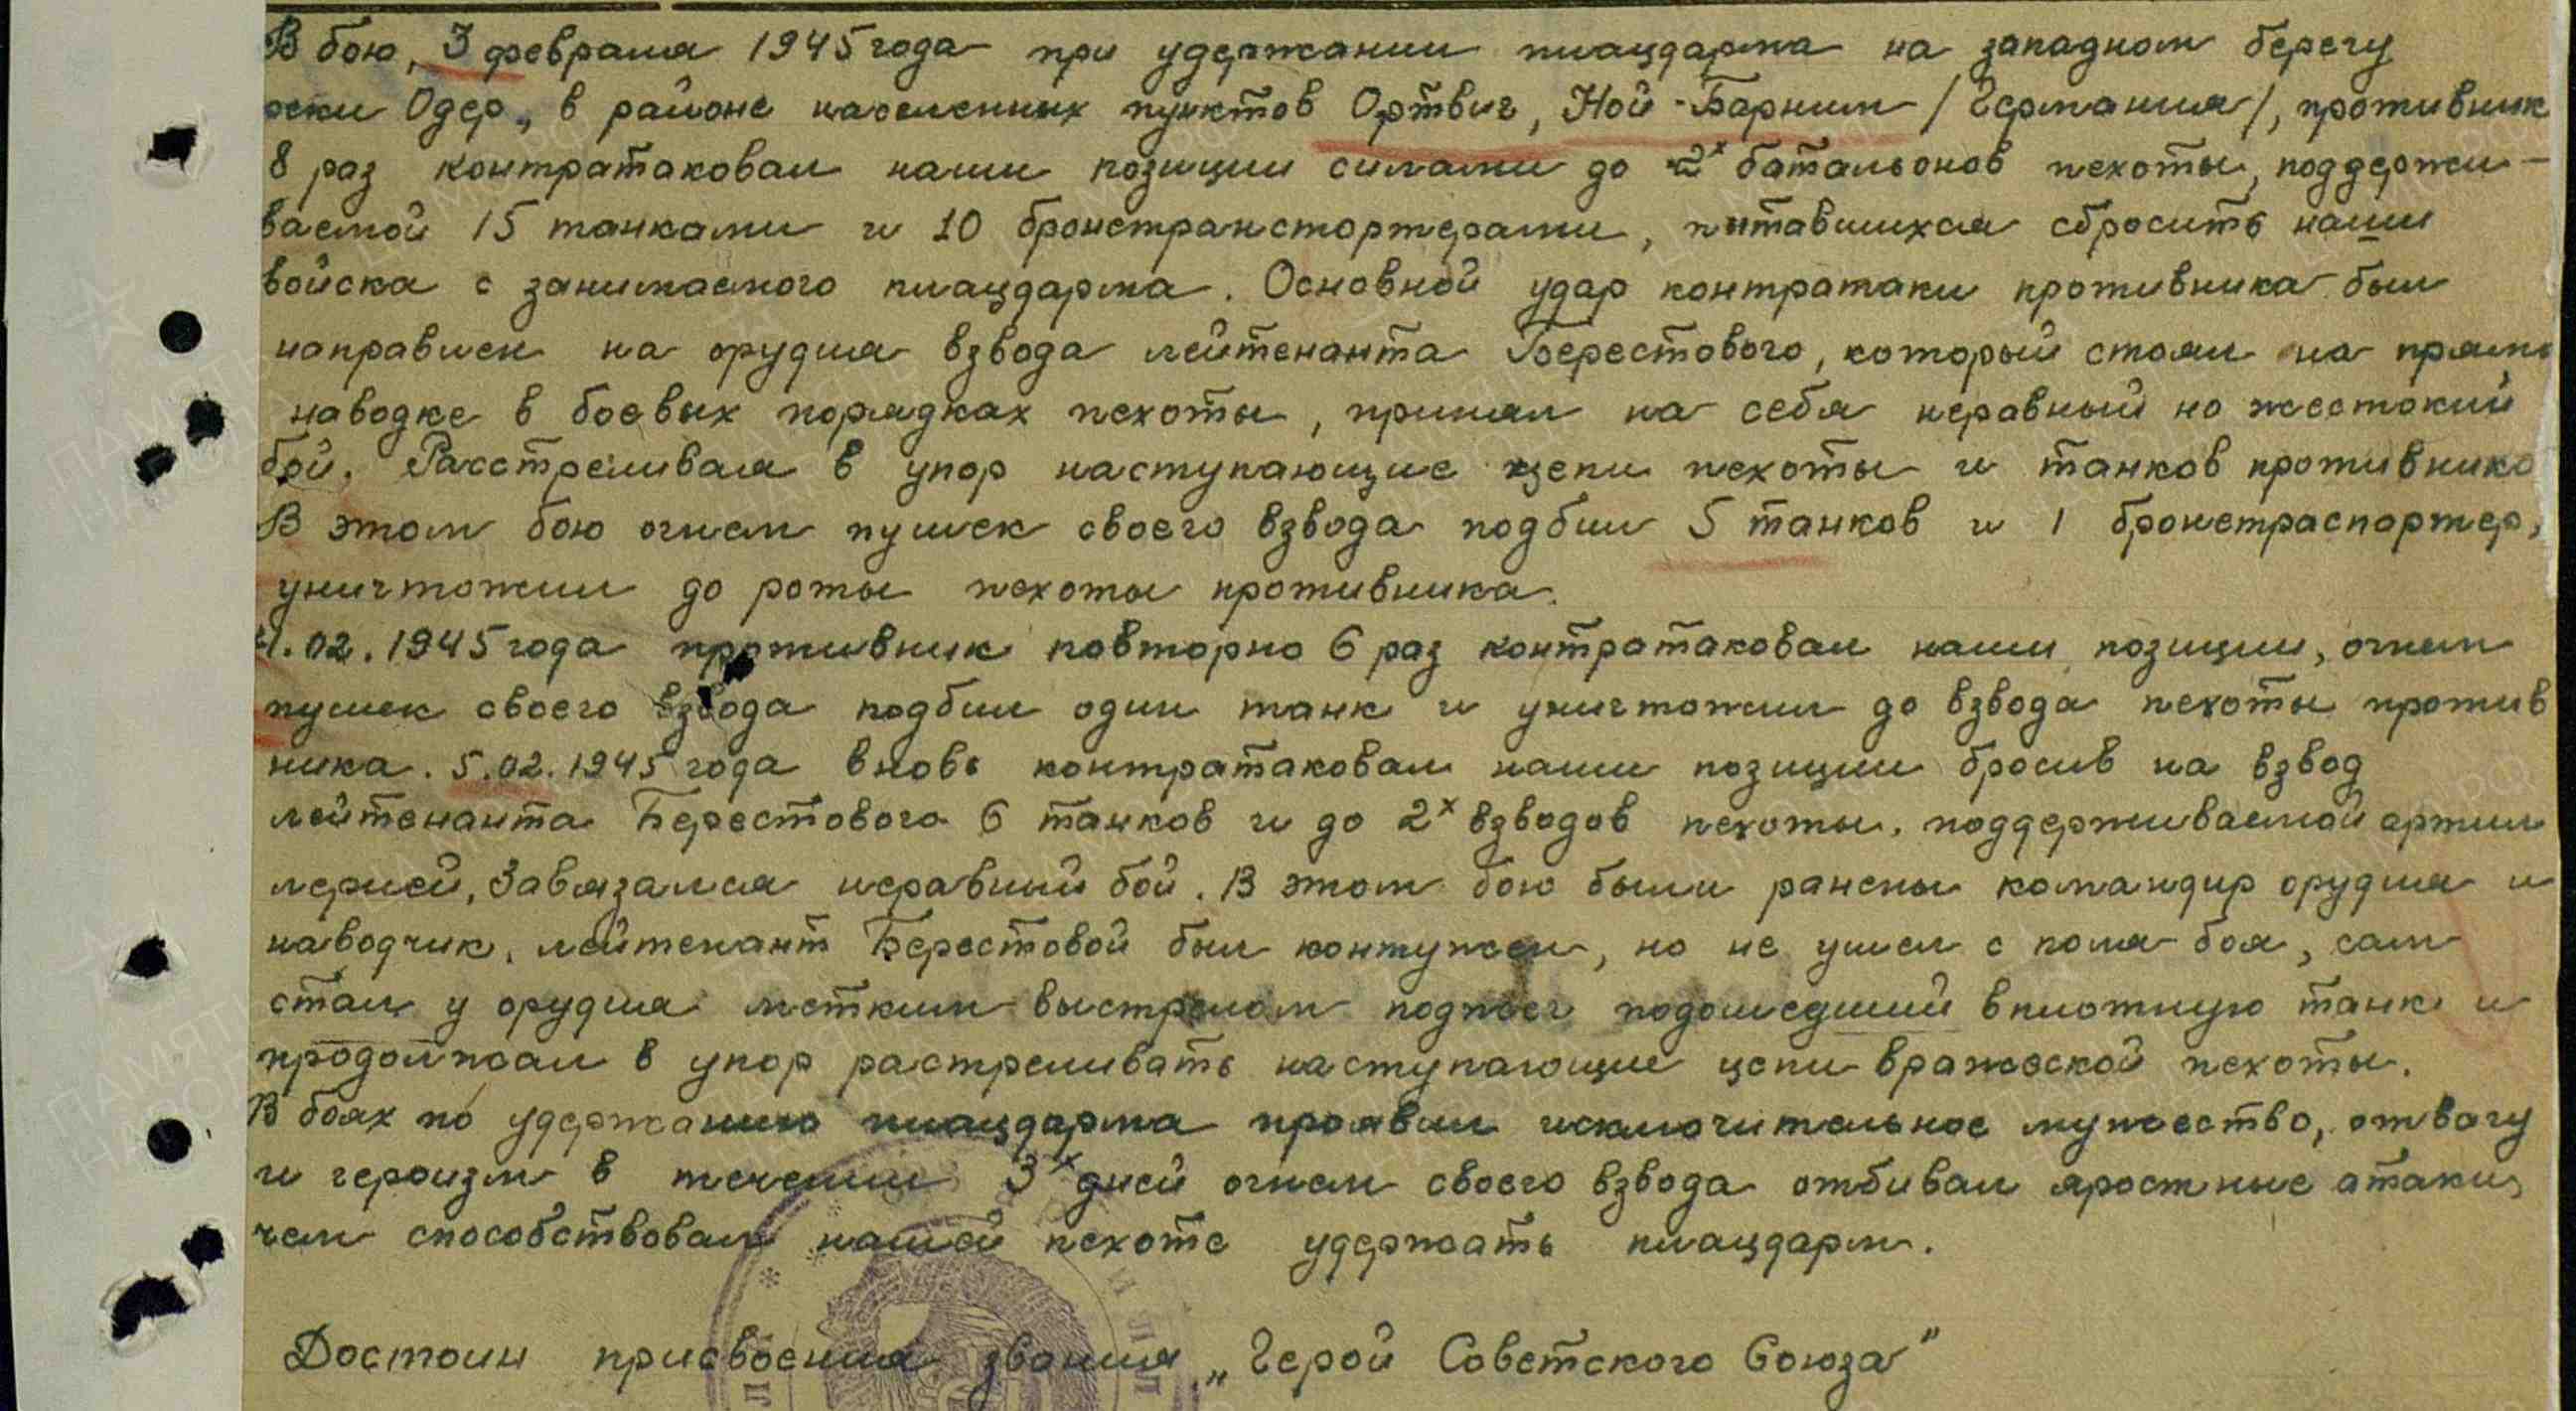 В бою, 3 февраля 1945 года при удержании плацдарма на западном берегу
реки Одер, в районе населенных пунктов Ортвиг, Ной-Барним /Германия/, противник
8 раз контратаковал наши позиции силами до 2х батальонов пехоты, поддержи-
ваемой 15 танками и 10 бронетранстортерами, пытавшихся сбросить наши
войска с занимаемого плацдарма. Основной удар контратаки противника был
направлен на орудия взвода лейтенанта Берестового, который стоял на прямо
наводке в боевых порядках пехоты, принял на себя неравный но жестокий
бой. Расстреливая в упор наступающие цепи пехоты и танков противника
В этом бою огнем пушек своего взвода подбил 5 танков и 1 бронетраспортер,
уничтожил до роты пехоты противника.
4.02.1945 года противник повторно 6 раз контратаковал наши позиции, огнем
пушек своего взвода подбил один танк и уничтожил до взвода пехоты против
ника. 5.02.1945 года вновь контратаковал наши позиции бросив на взвод
лейтенанта Берестового 6 танков и до 2х взводов пехоты, поддерживаемой артил
лерией, Завязался неравный бой. В этом бою были ранены командир орудия и
наводчик, лейтенант Берестовой был контужен, но не ушел с поля боя, сам
стал у орудия метким выстрелом поджег подошедший вплотную танк и
продолжал в упор растреливать наступающие цепи вражеской пехоты.
В боях по удержанию плацдарма проявил исключительное мужество, отвагу
и героизм в течении 3х дней огнем своего взвода отбивал яростные атаки,
чем способствовал нашей пехоте удержать плацдарм.
Достоин присвоения звания „Герой Советского Союза"